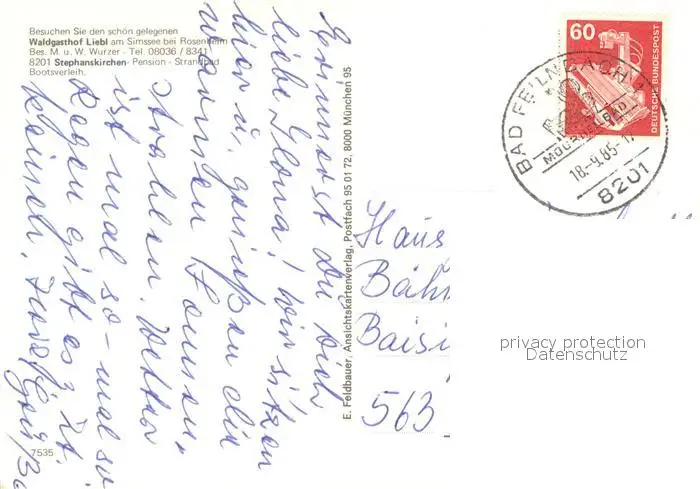 Besuchen Sie den schön gelegenen
Waldgasthof Liebl am Simssee bei Rosenheim
Bes. M. u. W. Wurzer - Tel. 08036 / 8341
8201 Stephanskirchen - Pension - Strandbad
Bootsverleih.
Erinnerst du dich
liebe Ilona! Wir sitzen
hier u. genießen die
warmen Sonnen-
strahlen. Wetter
ist mal so - mal so
Regen gibt es z. Zt.
keinen.
7535
E. Feldbauer, Ansichtskartenverlag, Postfach 95 01 72, 8000 München 95
60
DEUTSCHE BUNDESPOST
BAD FEILNBACH 1
18.-9.85-17
8201
Haus
Bäh
Baisi
563
privacy protection
Datenschutz